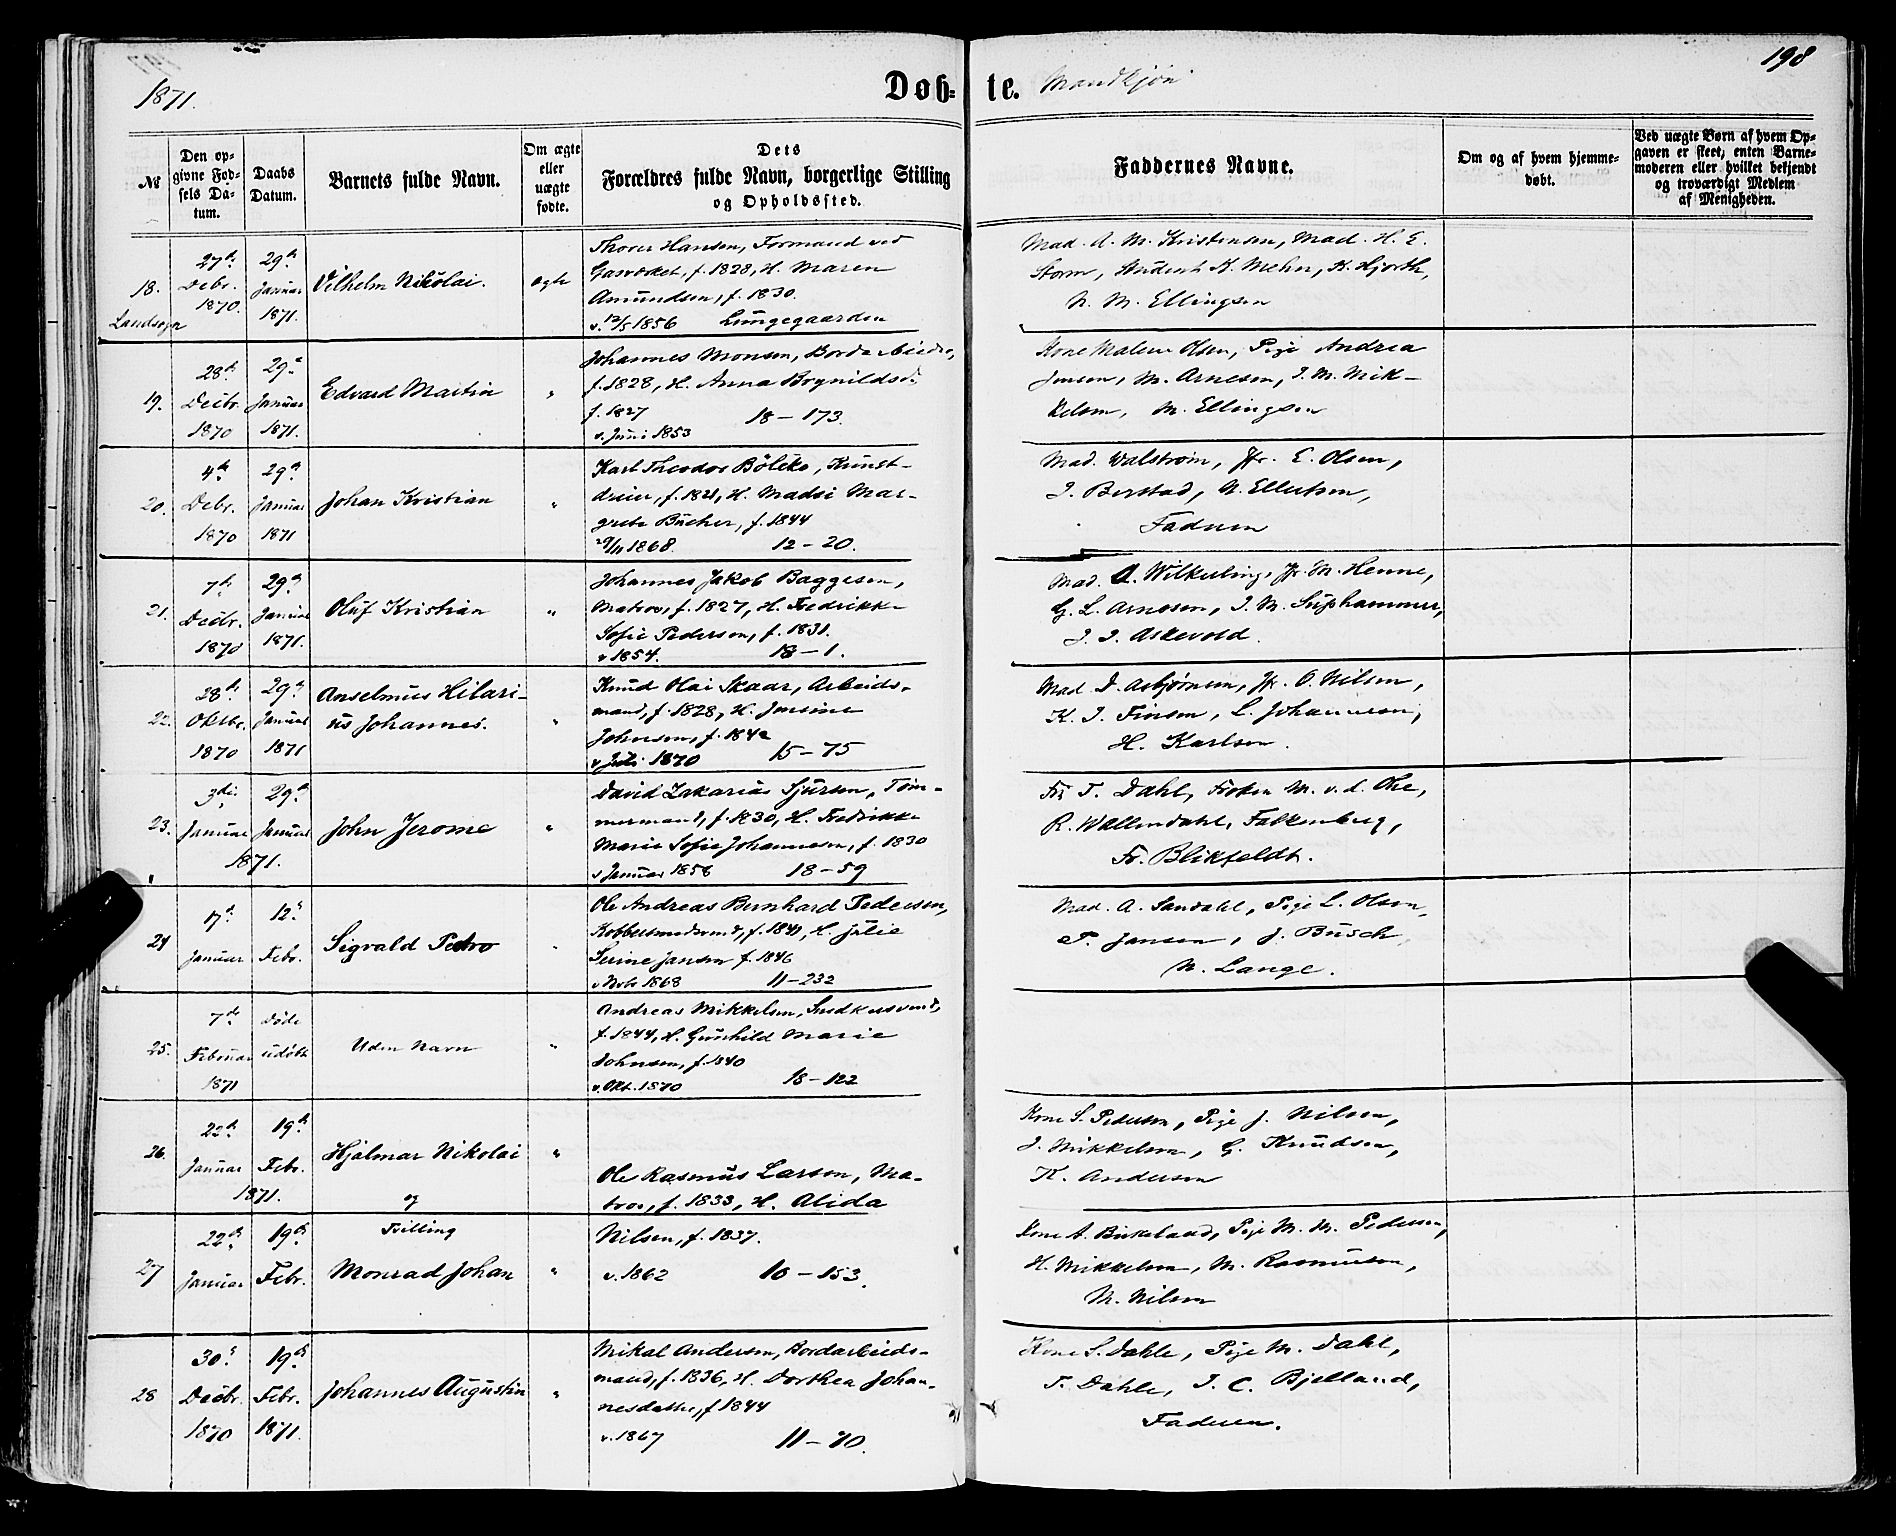 198
1871.
Døb-te. Mandkjøn
№
Den op-
givne Fød-
sels Da-
tum.
Daabs
Datum.
Barnets fulde Navn.
Om ægte
eller
uægte
fødte.
Dets
Forældres fulde Navn, borgerlige Stilling
og Opholdssted.
Faddernes Navne.
Om og af hvem hjemme-
døbt.
Ved uægte Børn af hvem Op-
gaven er skeet, enten Barne-
moderen eller hvilket bekjendt
og troværdigt Medlem
af Menigheden.
18.
Landsogn
27de
Debr.
1870.
29de
Januar
1871.
Vilhelm Nikolai.
ægte
Hansen, Formand ved
Gasværket, f. 1828, H. Maren
Amundsen, f. 1830.
v. 12/5 1856 Lungegaarden
Mad. A. M. Kristensen, Mad. H. E.
Storm, Student K. Mehn, K. Hjorth,
N. M. Ellingsen
19.
28de
Decbr.
1870
29de
Januar
1871.
Edvard Martin
"
Johannes Monsen, Bordarbeider,
f. 1828, H. Anna Brynildsd.
f. 1827
v. Juni 1853 18-173.
Kone Malene Olsen, Pige Andrea
Jensen, M. Arnesen, J. M. Mik-
kelsen, M. Ellingsen
20.
4de
Debr.
1870
29de
Januar
1871
Johan Kristian
"
Karl Theodor Bölcke, Kunst-
dreier, f. 1821, H. Madsi Mar-
grete Bücher, f. 1844
29/11 1868. 12-20.
Mad. Walstrøm, Jfr. E. Olsen,
J. Berstad, N. Ellertsen,
Faderen
21.
7de
Decbr.
1870
29de
Januar
1871.
Oluf Kristian
"
Johannes Jakob Baggesen,
Matros, f. 1827, H. Fredrikke
Sofie Pedersen, f. 1831.
v 1854. 18-1.
Mad. A. Wilkerling, Jfr. M. Henne,
G. L. Arnesen, J. M. Suphammer,
J. J. Askevold.
22.
28de
Oktbr.
1870
29de
Januar
1871
Anselmus Hilari-
us Johannes.
"
Knud Olai Skaar, Arbeids-
mand, f. 1828, H. Jensine
Johnsen, f. 1842
v Juli 1870 15-75
Mad D. Asbjørnsen, Jfr. O. Nilsen,
K. J. Finsen, L. Johannesen,
H. Karlsen.
23.
3die
Januar
1871.
29de
Januar
John Jerome
"
David Zakarias Sjursen, Tøm-
mermand, f. 1830, H. Fredrikke
Marie Sofie Johannesen, f. 1830
v Januar 1856 18-59
Fr. T. Dahl, Frøken M. v. d. Ohe,
R. Wallendahl, Falkenberg,
Fr. Blikfeldt.
24
17de
Januar
12te
Febr.
Sigvald Pedro
"
Ole Andreas Bernhard Pedersen,
Kobbersmedsvend, f. 1841, H. Julie
Serine Jansen f. 1846
v Novbr 1868 11-232
Mad. A. Sandahl, Pige L. Olsen,
P. Jansen, J. Busch,
N. Lange.
25.
7de
Februar
1871
Døde
udøbt
Uden Navn
"
Andreas Mikkelsen, Snedkersvend,
f. 1844, H. Gunhild Marie
Johnsen, f. 1840
v. Okt. 1870 18-122
26.
22de
Januar
1871.
19de
Febr.
Hjalmar Nikolai
og
"
Ole Rasmus Larsen, Ma-
tros, f. 1833, H. Alida
Kone S. Pedersen, Pige J. Nilsen,
J. Mikkelsen, G. Knudsen,
K. Andersen
27
22de
Januar
19de
Febr.
Tvilling
Monrad Johan
"
Nilsen, f. 1837.
v. 1862 10-153.
Kone A. Birkeland, Pige M. M. Pedersen,
H. Mikkelsen, M. Rasmussen,
M. Nilsen
28
30te
Decbr.
1870
19de
Febr.
1871.
Johannes Augustin
"
Mikal Andersen, Bordarbeids-
mand, f. 1836, H. Dorthea Johan-
nesdatter, f 1844
v. 1867 11-70.
Kone S. Dahle, Pige M. Dahl,
T. Dahle, J. C. Bjelland,
Faderen.